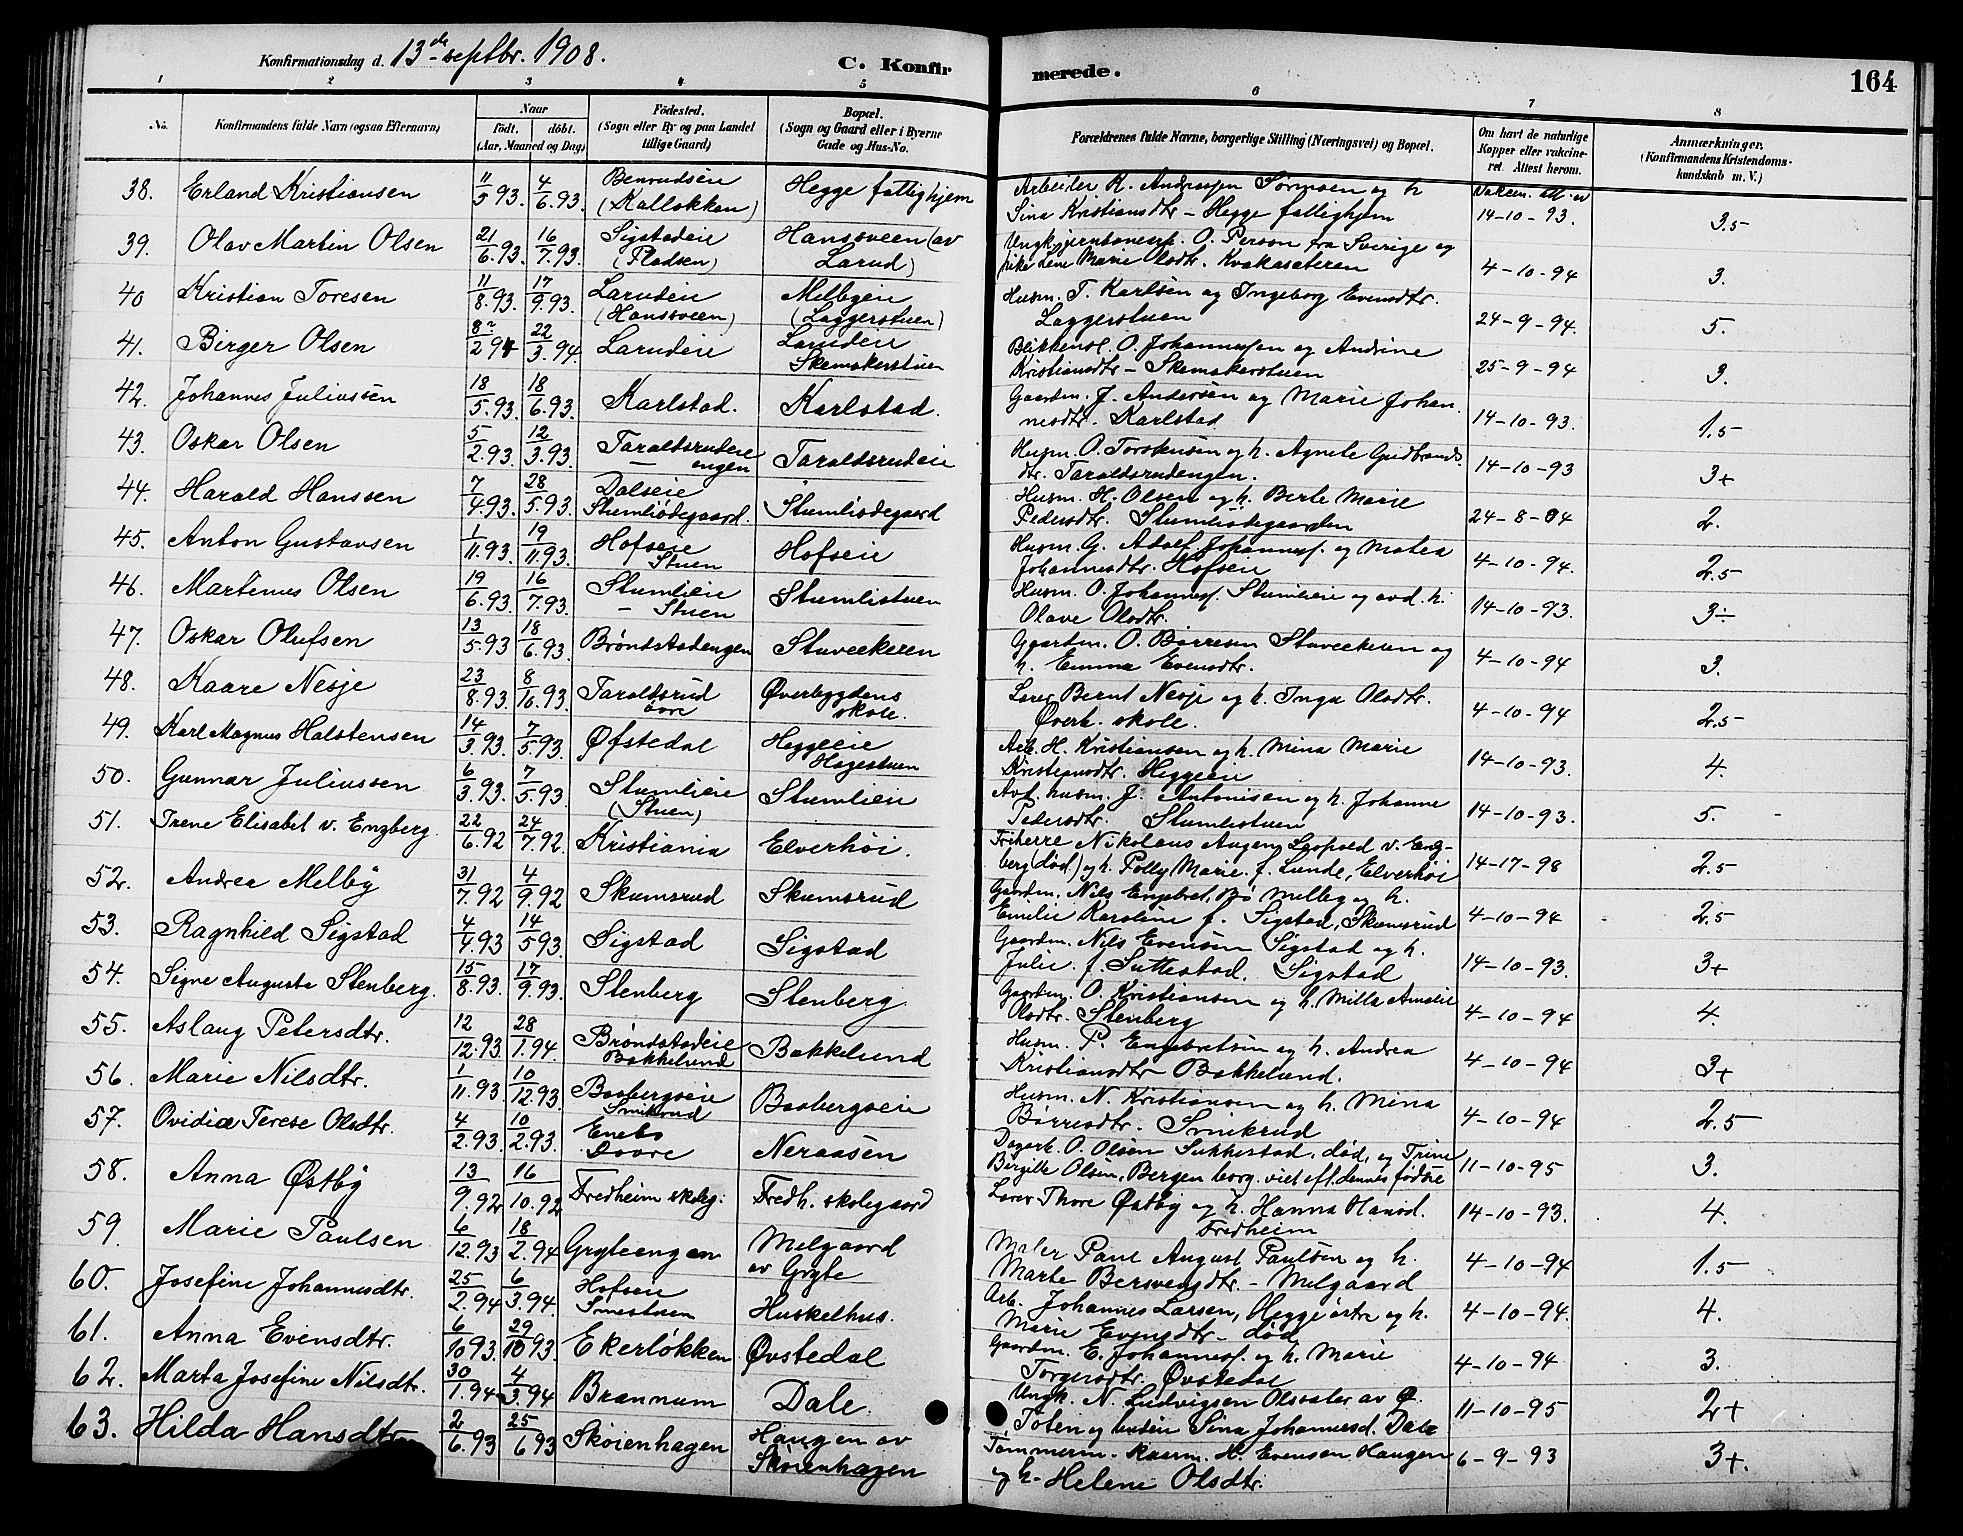 Konfirmationsdag d. 13de septbr. 1908. C. Konfirmerede. 164
1 2 3 4 5 6 7 8
No. Konfirmandens fulde Navn (ogsaa Efternavn) Naar födt. döbt. (Aar, Maaned og Dag) Födested. (Sogn eller By og paa Landet tillige Gaard) Bopæl. (Sogn og Gaard eller i Byerne Gade og Hus-No. Forældrenes fulde Navne, borgerlige Stilling (Næringsvei) og Bopæl. Om havt de naturlige Kopper eller vakcineret. Attest herom. Anmærkninger. (Konfirmandens Kristendomskundskab m. V.)
38. Erland Kristiansen 11/5 93. 4/6. 93. (Kalløkken) Hegge fattighjem Arbeider K. Andersen og h. Sina Kristiansdtr – Hegge fattighjem 14-10-93. 3.5
39. Olav Martin Olsen 21/6. 93. 16/7. 93. Sigstadeie (Pladsen) Hansveen (av Larud) O. Person fra Sverige og pike Lene Marie Olsdtr. Kvakasæteren 4-10-94 3.
40 Kristian Toresen 11/8. 93. 17/9. 93. Larudeie (Hansveen) Melbyeie (Laggerstuen) Husm. T. Karlsen og Ingeborg Evensdtr. Laggerstuen 24-9-94. 5.
41. Birger Olsen 8?/2 94 22/3. 94 Larudeie Larudeie Skomakerstuen Blikkensl. O. Johannessen og Andrine Kristiansdtr – Skomakerstuen 25-9-94 3.
42. Johannes Juliussen 18/5. 93. 18/6. 93. Karlstad. Karlstad. Gaardm. J. Andersen og Marie Johannesdtr. Karlstad 14-10-93. 1.5
43. Oskar Olsen 5/2. 93. 12/3. 93. Taraldsrudeie – engen Taraldsrudeie Husm. O. Torstensen og h. Agnete Gudbrandsdtr. Taraldsrudengen. 14-10-93 3+
44. Harald Hanssen 7/4. 93. 28/5. 93. Dalseie Stumliødegaard. Stumliødegaard Husm. H. Olsen og h. Berte Marie Pedersdtr. Stumliødegaarden 24-8-04 2.
45. Anton Gustavsen 1/11. 93. 19/11. 93. Hofseie Stuen Hofseie Husm. G. Adolf Johannesf. og Matea Johannesdtr. Hofseie 4-10-94. 2.5
46. Martinus Olsen 19/6. 93 16/7. 93. Stumlieie – Stuen Stumlistuen Husm. O. Johannesf. Stumlieie og avd. h. Olave Olsdtr. 14-10-93. 3÷
47. Oskar Olufsen 13/5. 93 18/6. 93. Brøndstadengen Stuveekeren Gaardm. O. Børresen Stuveekeren og h. Emma Evensdtr. 4-10-94 3.
48. Kaare Nesje 23/8. 93. 8/10. 93. Taraldsrud øvre Øverbygdens skole. Lærer Bernt Nesje og h. Inga Olsdtr. Øverb. skole. 4-10-94 2.5
49. Karl Magnus Halstensen 14/3. 93. 7/5. 93 Øfstedal Heggeeie Hagestuen Arb. H. Kristiansen og h. Mina Marie Kristiansdtr. Heggeeie 14-10-93. 4.
50. Gunnar Juliussen 6/3. 93. 7/5. 93 Stumlieie (Stuen) Stumlieie Avd. husm. J. Antonisen og h. Johanne Pedersdtr. Stumlistuen 14-10-93. 5.
51. Irene Elisabet v. Enzberg. 22/6. 92 24/7. 92 Kristiania Elverhöi. Friherre Nikolaus Leopold v. Enzberg (død) og h. Polly Marie f. Lunde, Elverhöi 14-17-98 2.5
52. Andrea Melby 31/7. 92 4/9. 92 Skumsrud Skumsrud Gaardm. Nils Engebret. Melby og h. Emilie Karoline f. Sigstad, Skumsrud 4-10-94 2.5
53. Ragnhild Sigstad 4/4. 93 14/5 93. Sigstad Sigstad Gaardm. Nils Evensen Sigstad og h. Julie f. Suttestad. Sigstad 14-10-93. 3+
54. Signe Augusta Stenberg. 15/8. 93. 17/9. 93. Stenberg Stenberg Gaardm. O. Kristiansen og h. Milla Amalie Olsdtr. Stenberg 4-10-94 4.
55. Aslaug Petersdtr. 12/12. 93 28/1. 94. Brøndstadeie Bakkelund Bakkelund Husm. P. Engebretsen og h. Andrea Kristiansdtr Bakkelund. 4-10-94 3+
56. Marie Nilsdtr. 1/11. 93 10/12. 93. Baabergseie Smikrud Baabergseie Husm. N. Kristiansen og h. Mina Børresdtr. Smikrud 4-10-94 2.5
57. Ovidia Terese Olsdtr. 4/2. 93. 10/2. 93. Enebo Neraasen Dagarb. O. Olsen Sukkestad, død, og Trine Bergitte Olsen, Bergen borg. viet eft. dennes fødsel 11-10-95 3.
58. Anna Østby 13/9. 92 16/10. 92 Fredheim skoleg. Fredh. skolegaard Lærer Thore Østby og h. Hanna Hansd. Fredheim 14-10-93. 4.
59. Marie Paulsen 6/12. 93 18/2. 94 Gryteengen Melgaard av Gryte Maler Paul August Paulsen og h. Marte Bersvensdtr. – Melgaard 4-10-94 1.5
60. Josefine Johannesdtr. 25/2. 94 6/3. 94. Hofseie Smestuen Huskelhus. Arb. Johannes Larsen, Hegge østre og h. Marie Evensdtr – død 4-10-94. 4.
61. Anna Evensdtr. 6/10 93. 29/10 93. Ekerløkken Øvstedal Gaardm. E. Johannesf. og h. Marie Torgersdtr. Øvstedal 4-10-94 3.
62. Marta Josefine Nilsdtr. 30/1. 94 4/3 94 Brannum Dale. Ungk. N. Ludvigsen Olssæter av Ø. Toten og Sina Johannesd. Dale 11-10-95 2+
63. Hilda Hansdtr 2/6. 93 25/6 93 Skøienhagen Haugen av Skøienhagen Tømmerm. H. Evensen Haugen og h. Helene Olsdtr. 6-9-93 3+.